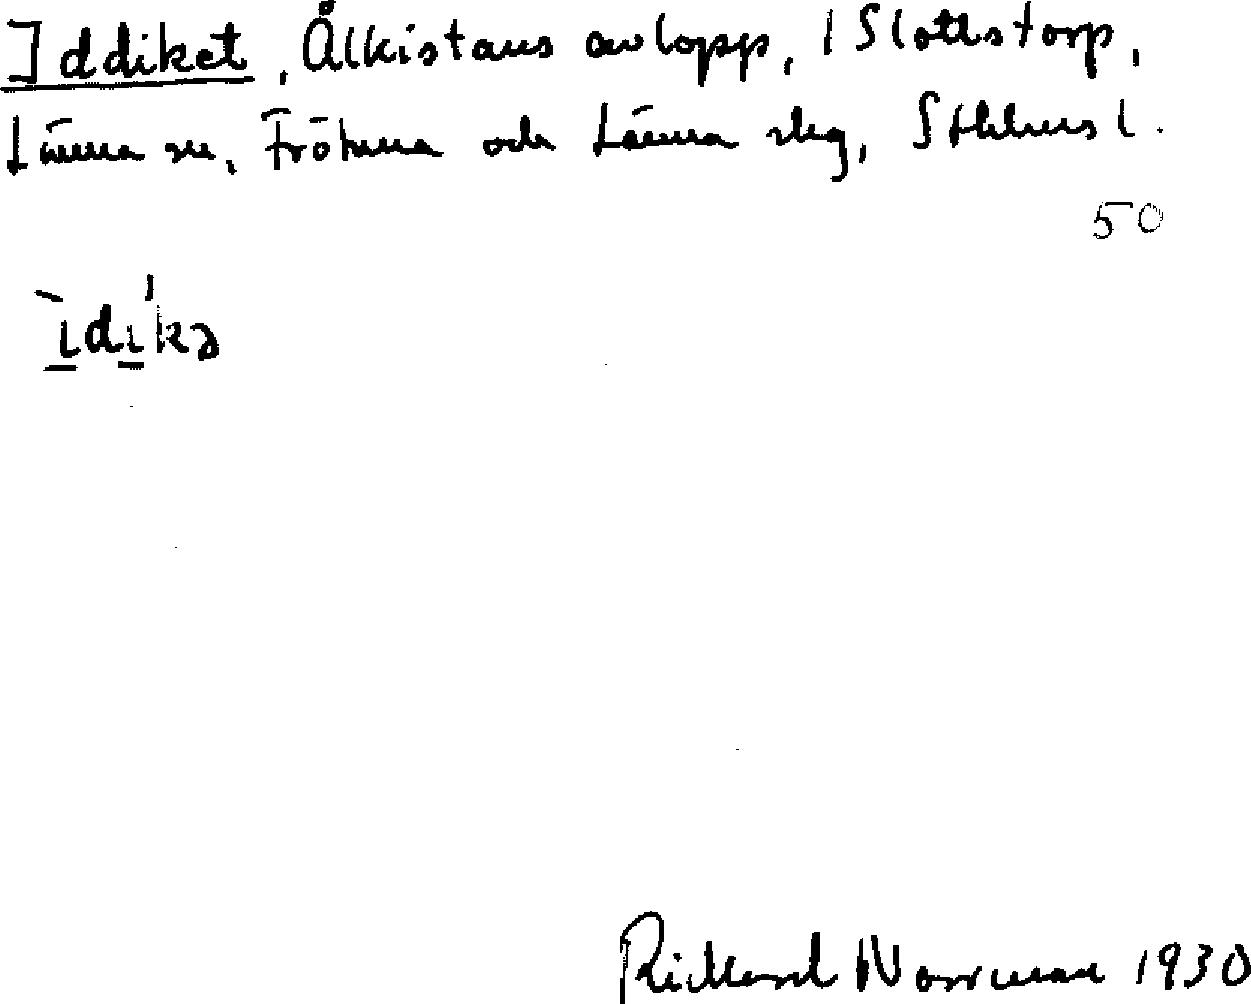 Iddiket, Ålkistans avlopp, 1 Slottstorp,
Länna sn, Fröhuna och Länna skg, Sthlms l.
50
ìdíkə
Richard Norrman 1930